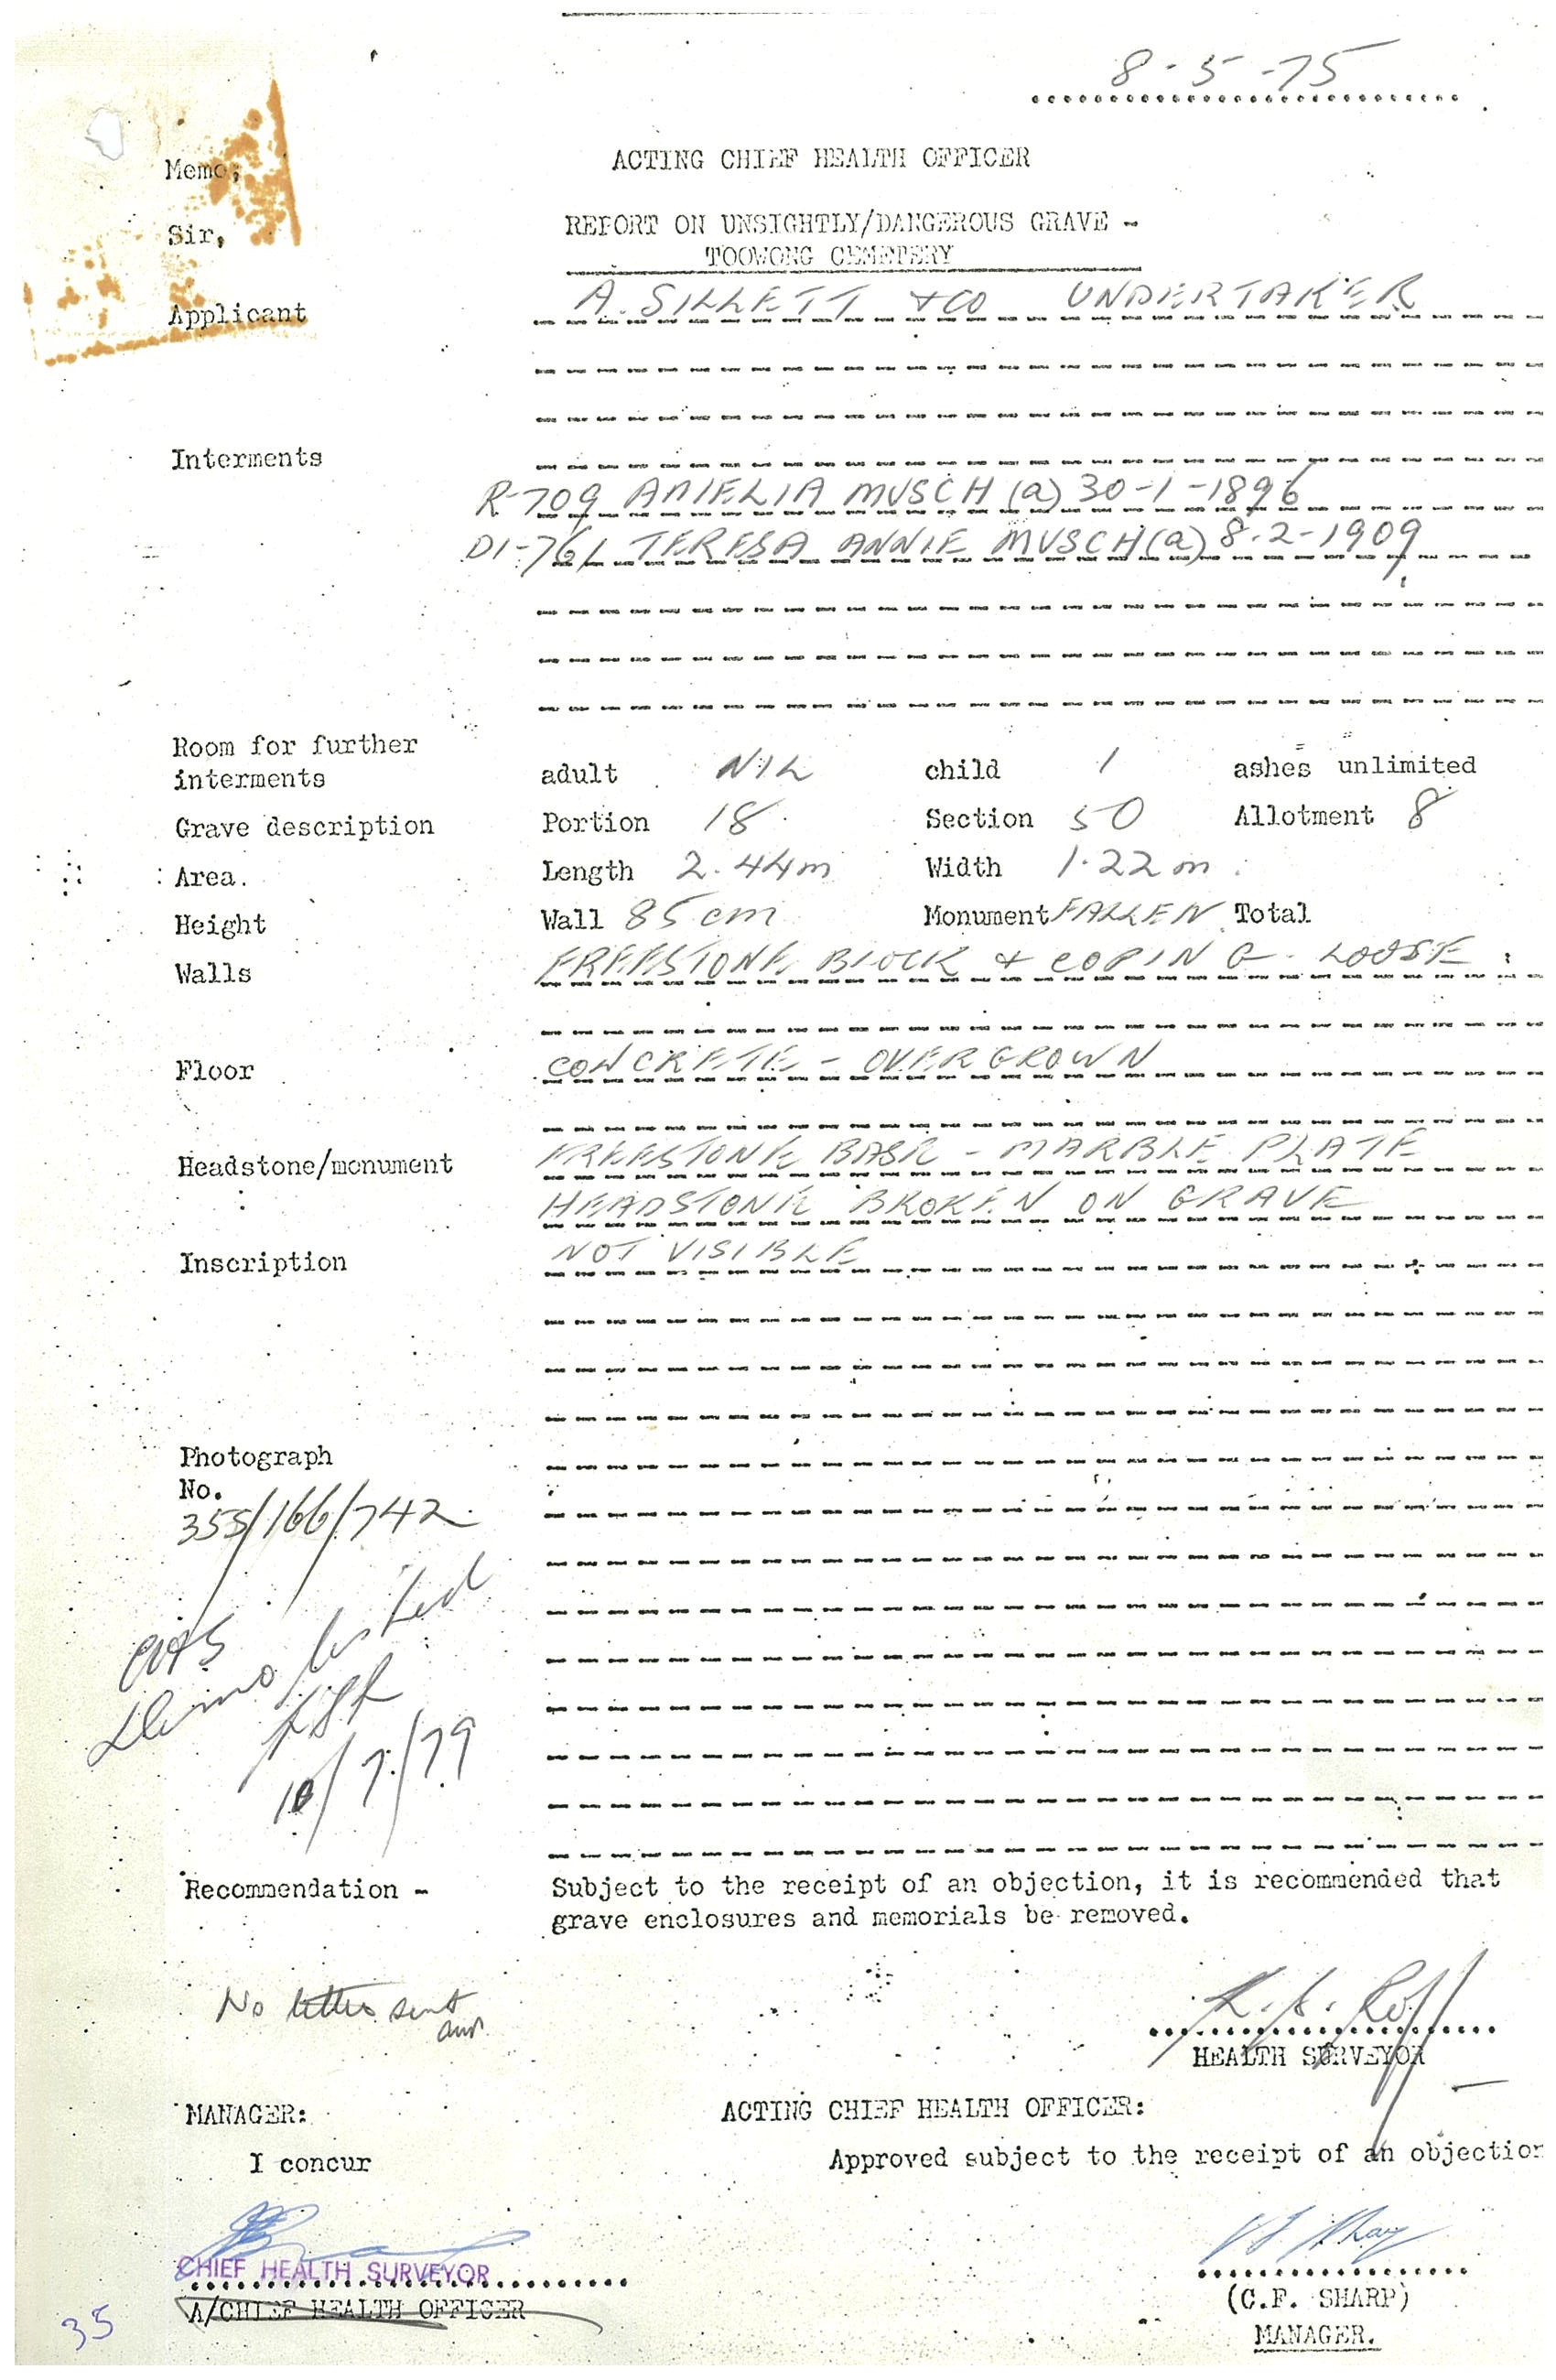 8-5-75
ACTING CHIEF HEALTH OFFICER
Memo;
REPORT ON UNSIGHTLY/DANGEROUS GRAVE -
Sir,
TOOWONG CEMETERY
Applicant A. SILLETT & CO UNDERTAKER
Interments
R-709 AMELIA MUSCH (a) 30-1-1896
D1-761 TERESA ANNIE MUSCH (a) 8.2-1909
Room for further
interments adult NIL child 1 ashes unlimited
Grave description Portion 18 Section 50 Allotment 8
Area. Length 2.44m Width 1.22m
Height Wall 85 cm Monument FALLEN Total
Walls FREESTONE BLOCK & COPING - LOOSE.
Floor CONCRETE - OVERGROWN
Headstone/monument FREESTONE BASE - MARBLE PLATE
HEADSTONE BROKEN ON GRAVE
Inscription NOT VISIBLE
Photograph
No.
355/166/742
Demolished
10/7/79
Recommendation - Subject to the receipt of an objection, it is recommended that
grave enclosures and memorials be removed.
No letters sent
HEALTH SURVEYOR
MANAGER: ACTING CHIEF HEALTH OFFICER:
I concur Approved subject to the receipt of an objection
CHIEF HEALTH SURVEYOR
A/CHIEF HEALTH OFFICER
(C.F. SHARP)
MANAGER.
35